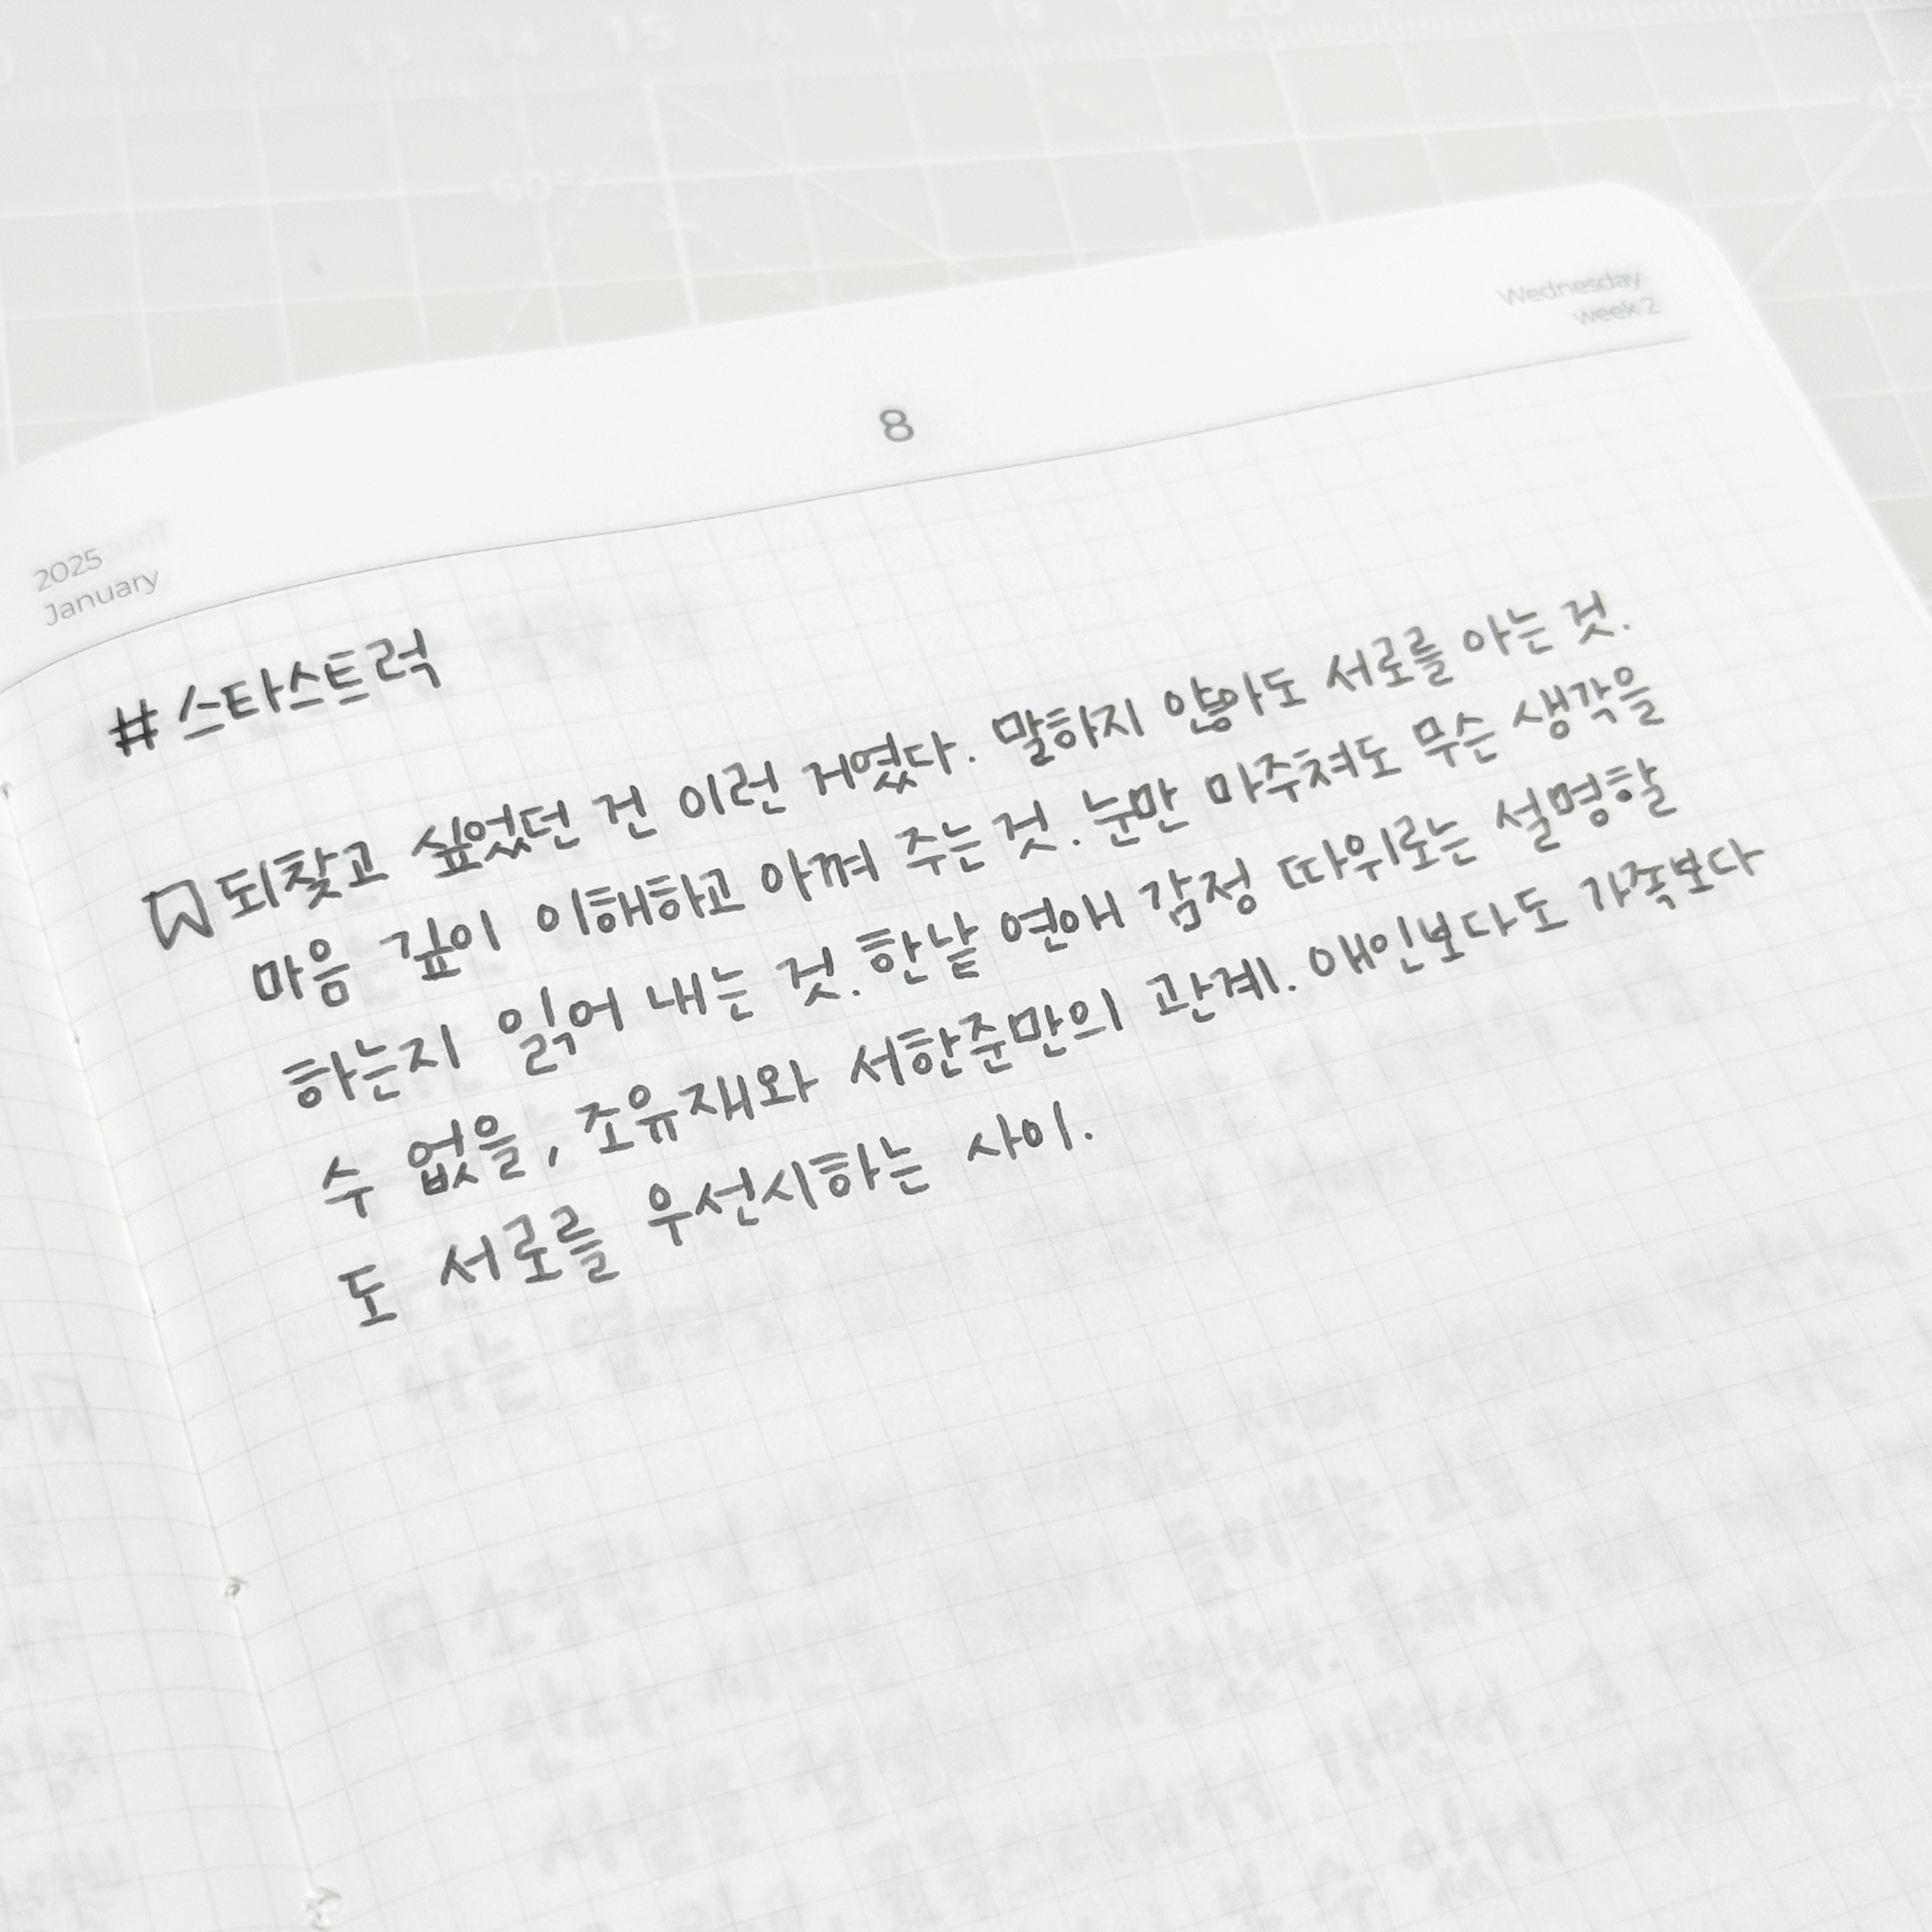 11 12 13 14 15 16 17 18 19 20
45°
60°
Wednesday
week 2
8
2025
January
#스타스트럭
되찾고 싶었던 건 이런 거였다. 말하지 않아도 서로를 아는 것.
마음 깊이 이해하고 아껴 주는 것. 눈만 마주쳐도 무슨 생각을
하는지 읽어 내는 것. 한낱 연애 감정 따위로는 설명할
수 없을, 조유재와 서한준만의 관계. 애인보다도 가족보다
도 서로를 우선시하는 사이.